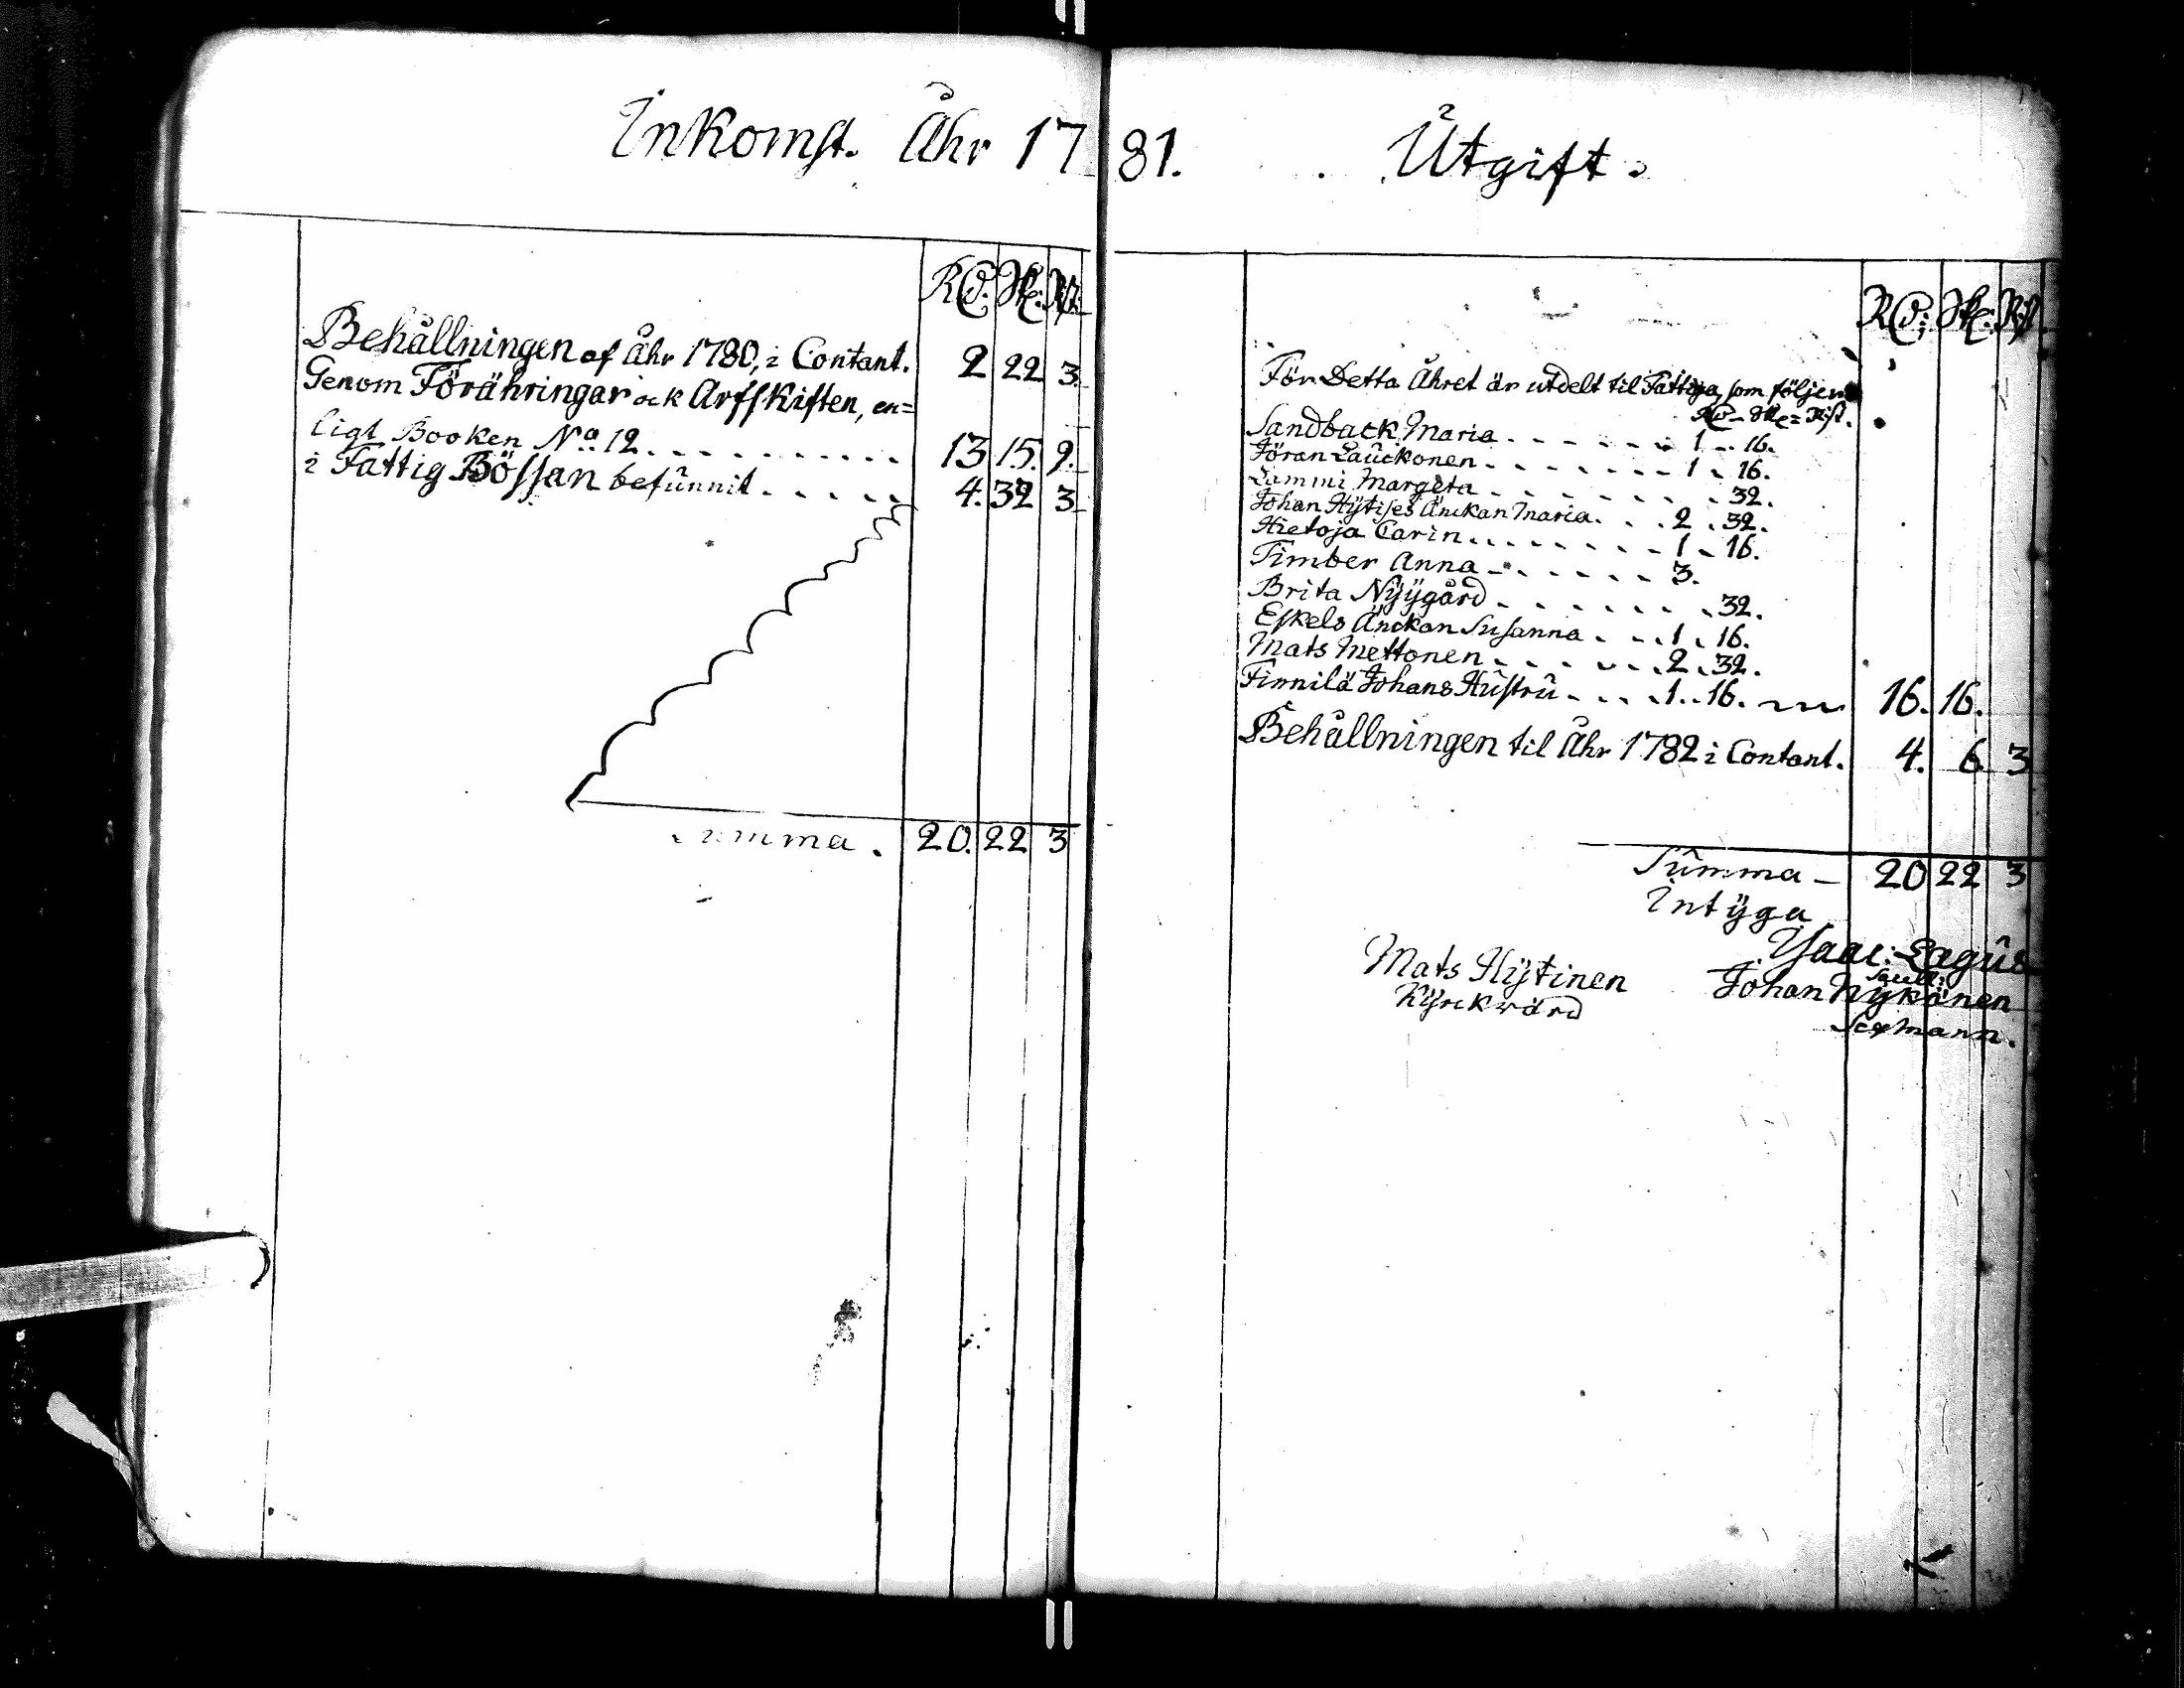 Inkomst. Åhr 1781. Utgift.
RD. Sk. Rst.
Behållningen af Åhr 1780, i Contant. 2 22 3.
Genom Förähringar ock Arfskiften, en=
ligt Booken No 12. . . . . . . . . . 13 15. 9.
i Fattig Bössan befunnit. . . . . . 4. 32 3
Summa. 20. 22 3
RD: Sk: Rst.
För Detta Åhret är utdelt til Fattiga, som följer
RD - Sk = Rst.
Sandback Maria - - - - - - 1 - 16.
Jöran Lauckonen - - - - - - 1 - 16.
Lammi Margeta - - - - - - - 32.
Johan Hÿtises Änckan Maria. . . . 2 . 32.
Hietoja Carin. . . . . . . - 1 - 16.
Timber Anna - - - - - - - 3.
Brita Nÿÿgård - - - - - - - 32.
Eskels Änckan Susanna - - . 1 . 16.
Mats Mettonen - - - - - . 2 . 32.
Finnilä Johans Hustru - . . . 1. . 16. 16. 16.
Behållningen til Åhr 1782 i Contant. 4. 6 3
Summa - 20 22 3
Intÿga
Ysaac: Lagus
Sacell:
Mats Hÿtinen Johan Nykänen
Kÿrckwärd Sexmann.